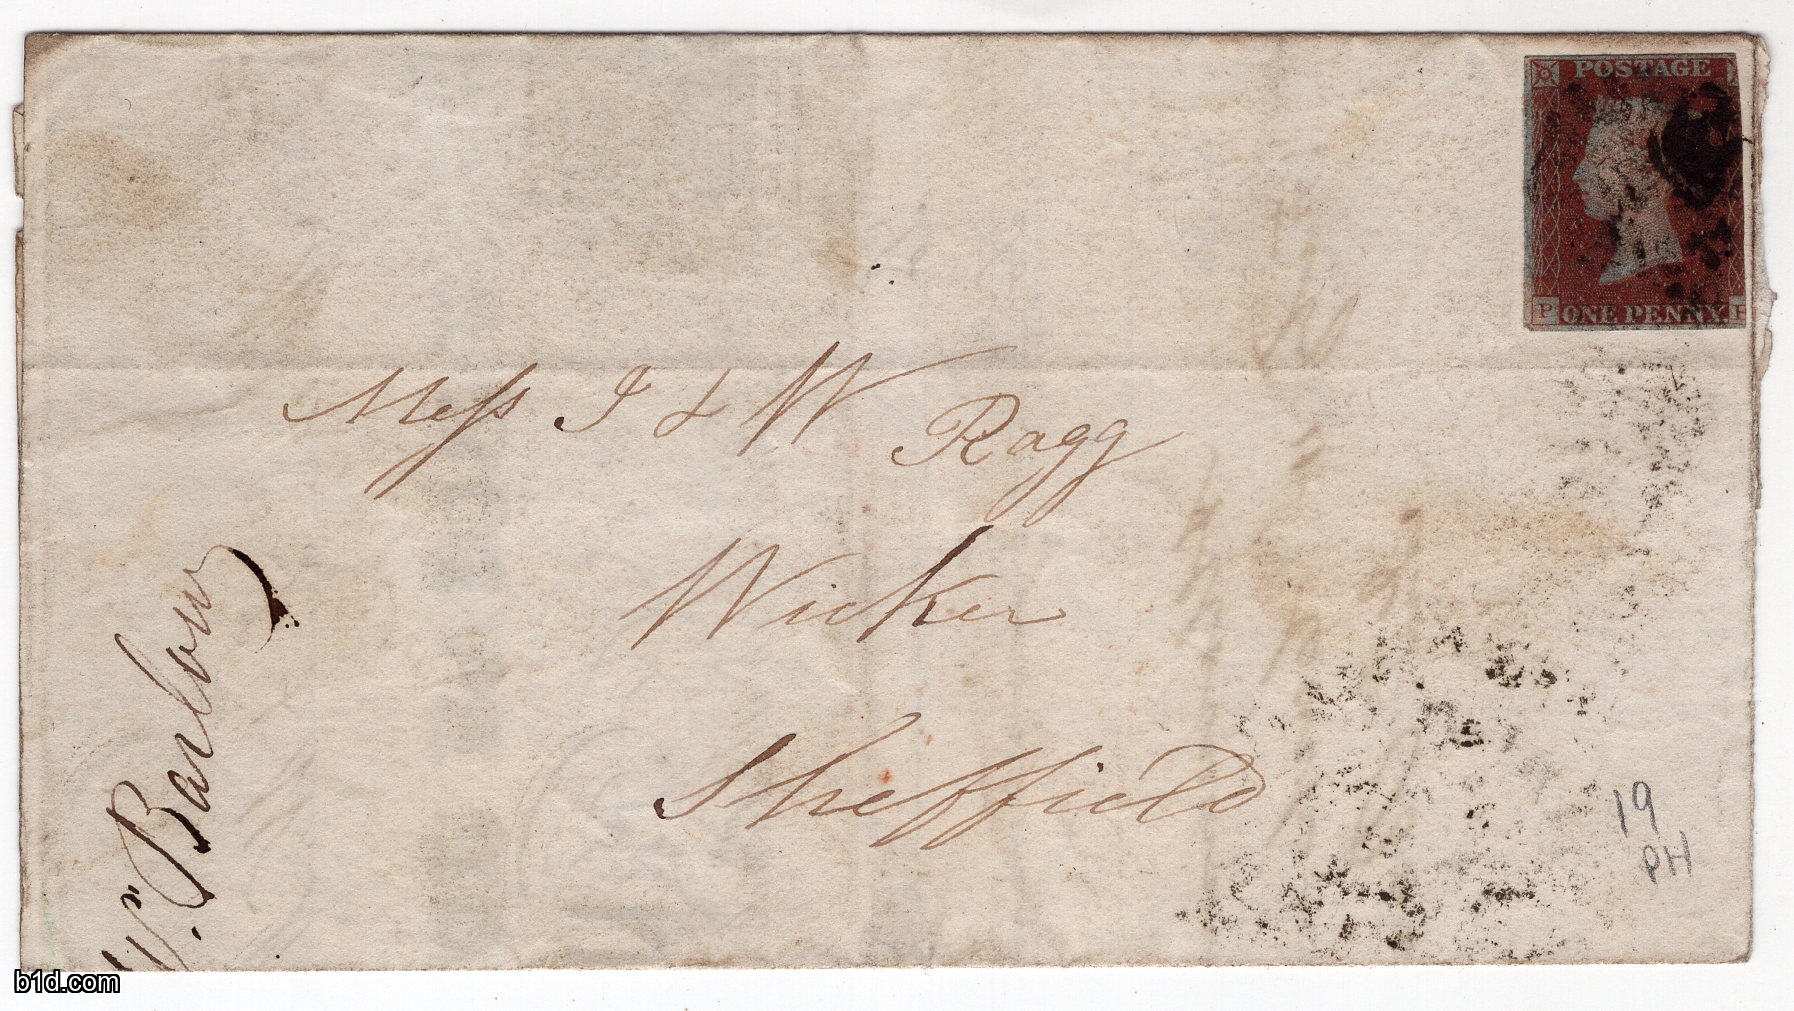 POSTAGE
P ONE PENNY.
Mess J & W Ragg
Wicker
Sheffield
Barlow
19
PH
b1d.com